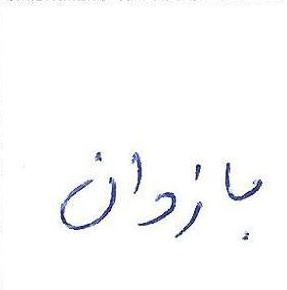 بازوان